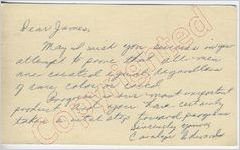 Dear James,
May I wish you success in your
attempt to prove that all men
are created equal regardless
of race, color or creed.
Progress is our most important
product and you have certainly
taken a vital step toward progress
Sincerely yours,
Carolyn Edwards
Copyrighted